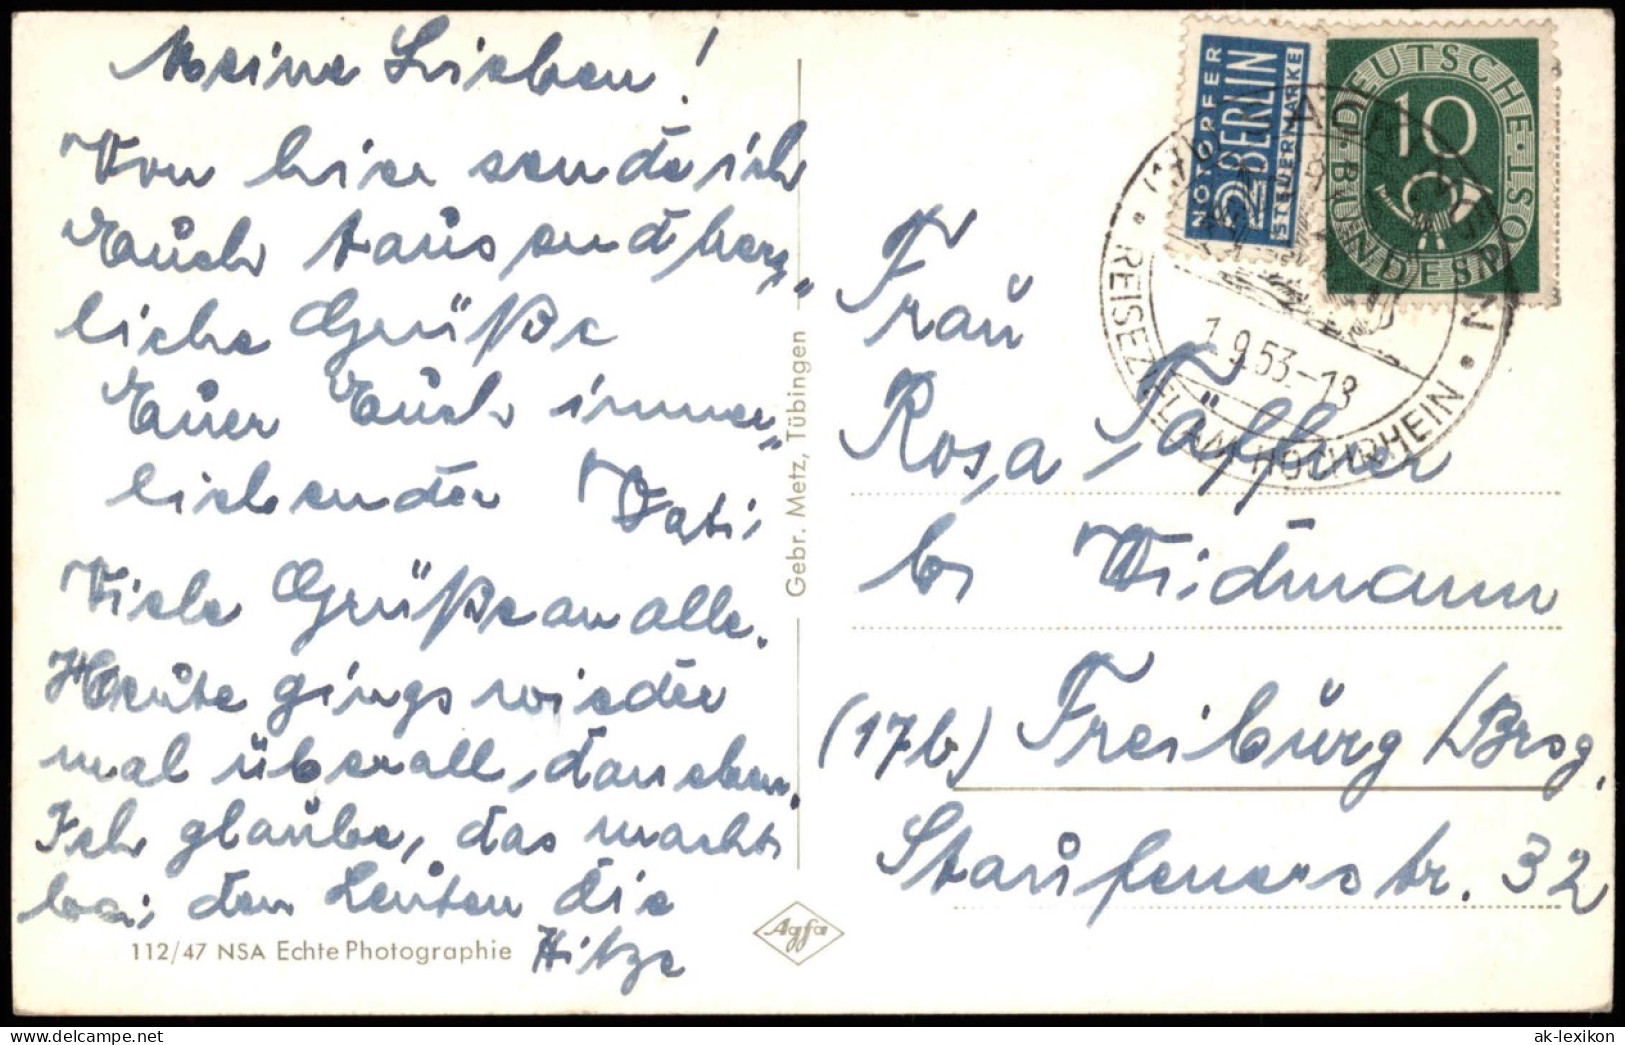 Meine Lieben!
Von hier sende ich
Euch tausend herz„
liche Grüße
Euer Euch immer„
liebender Vati.
Viele Grüße an alle.
Heute gings wieder
mal überall daneben.
Ich glaube, das macht
bei den Leuten die
Hitze
112/47 NSA Echte Photographie
Agfa
Gebr. Metz, Tübingen
NOTOPFER
2 BERLIN
STEUERMARKE
DEUTSCHE · BUNDESPOST
10
(17b)
1.9.53-18
• REISEZIEL AM HOCHRHEIN •
Frau
Rosa Täffner
b. Widmann
(17b) Freiburg /Brsg.
Staufenerstr. 32
ak-lexikon